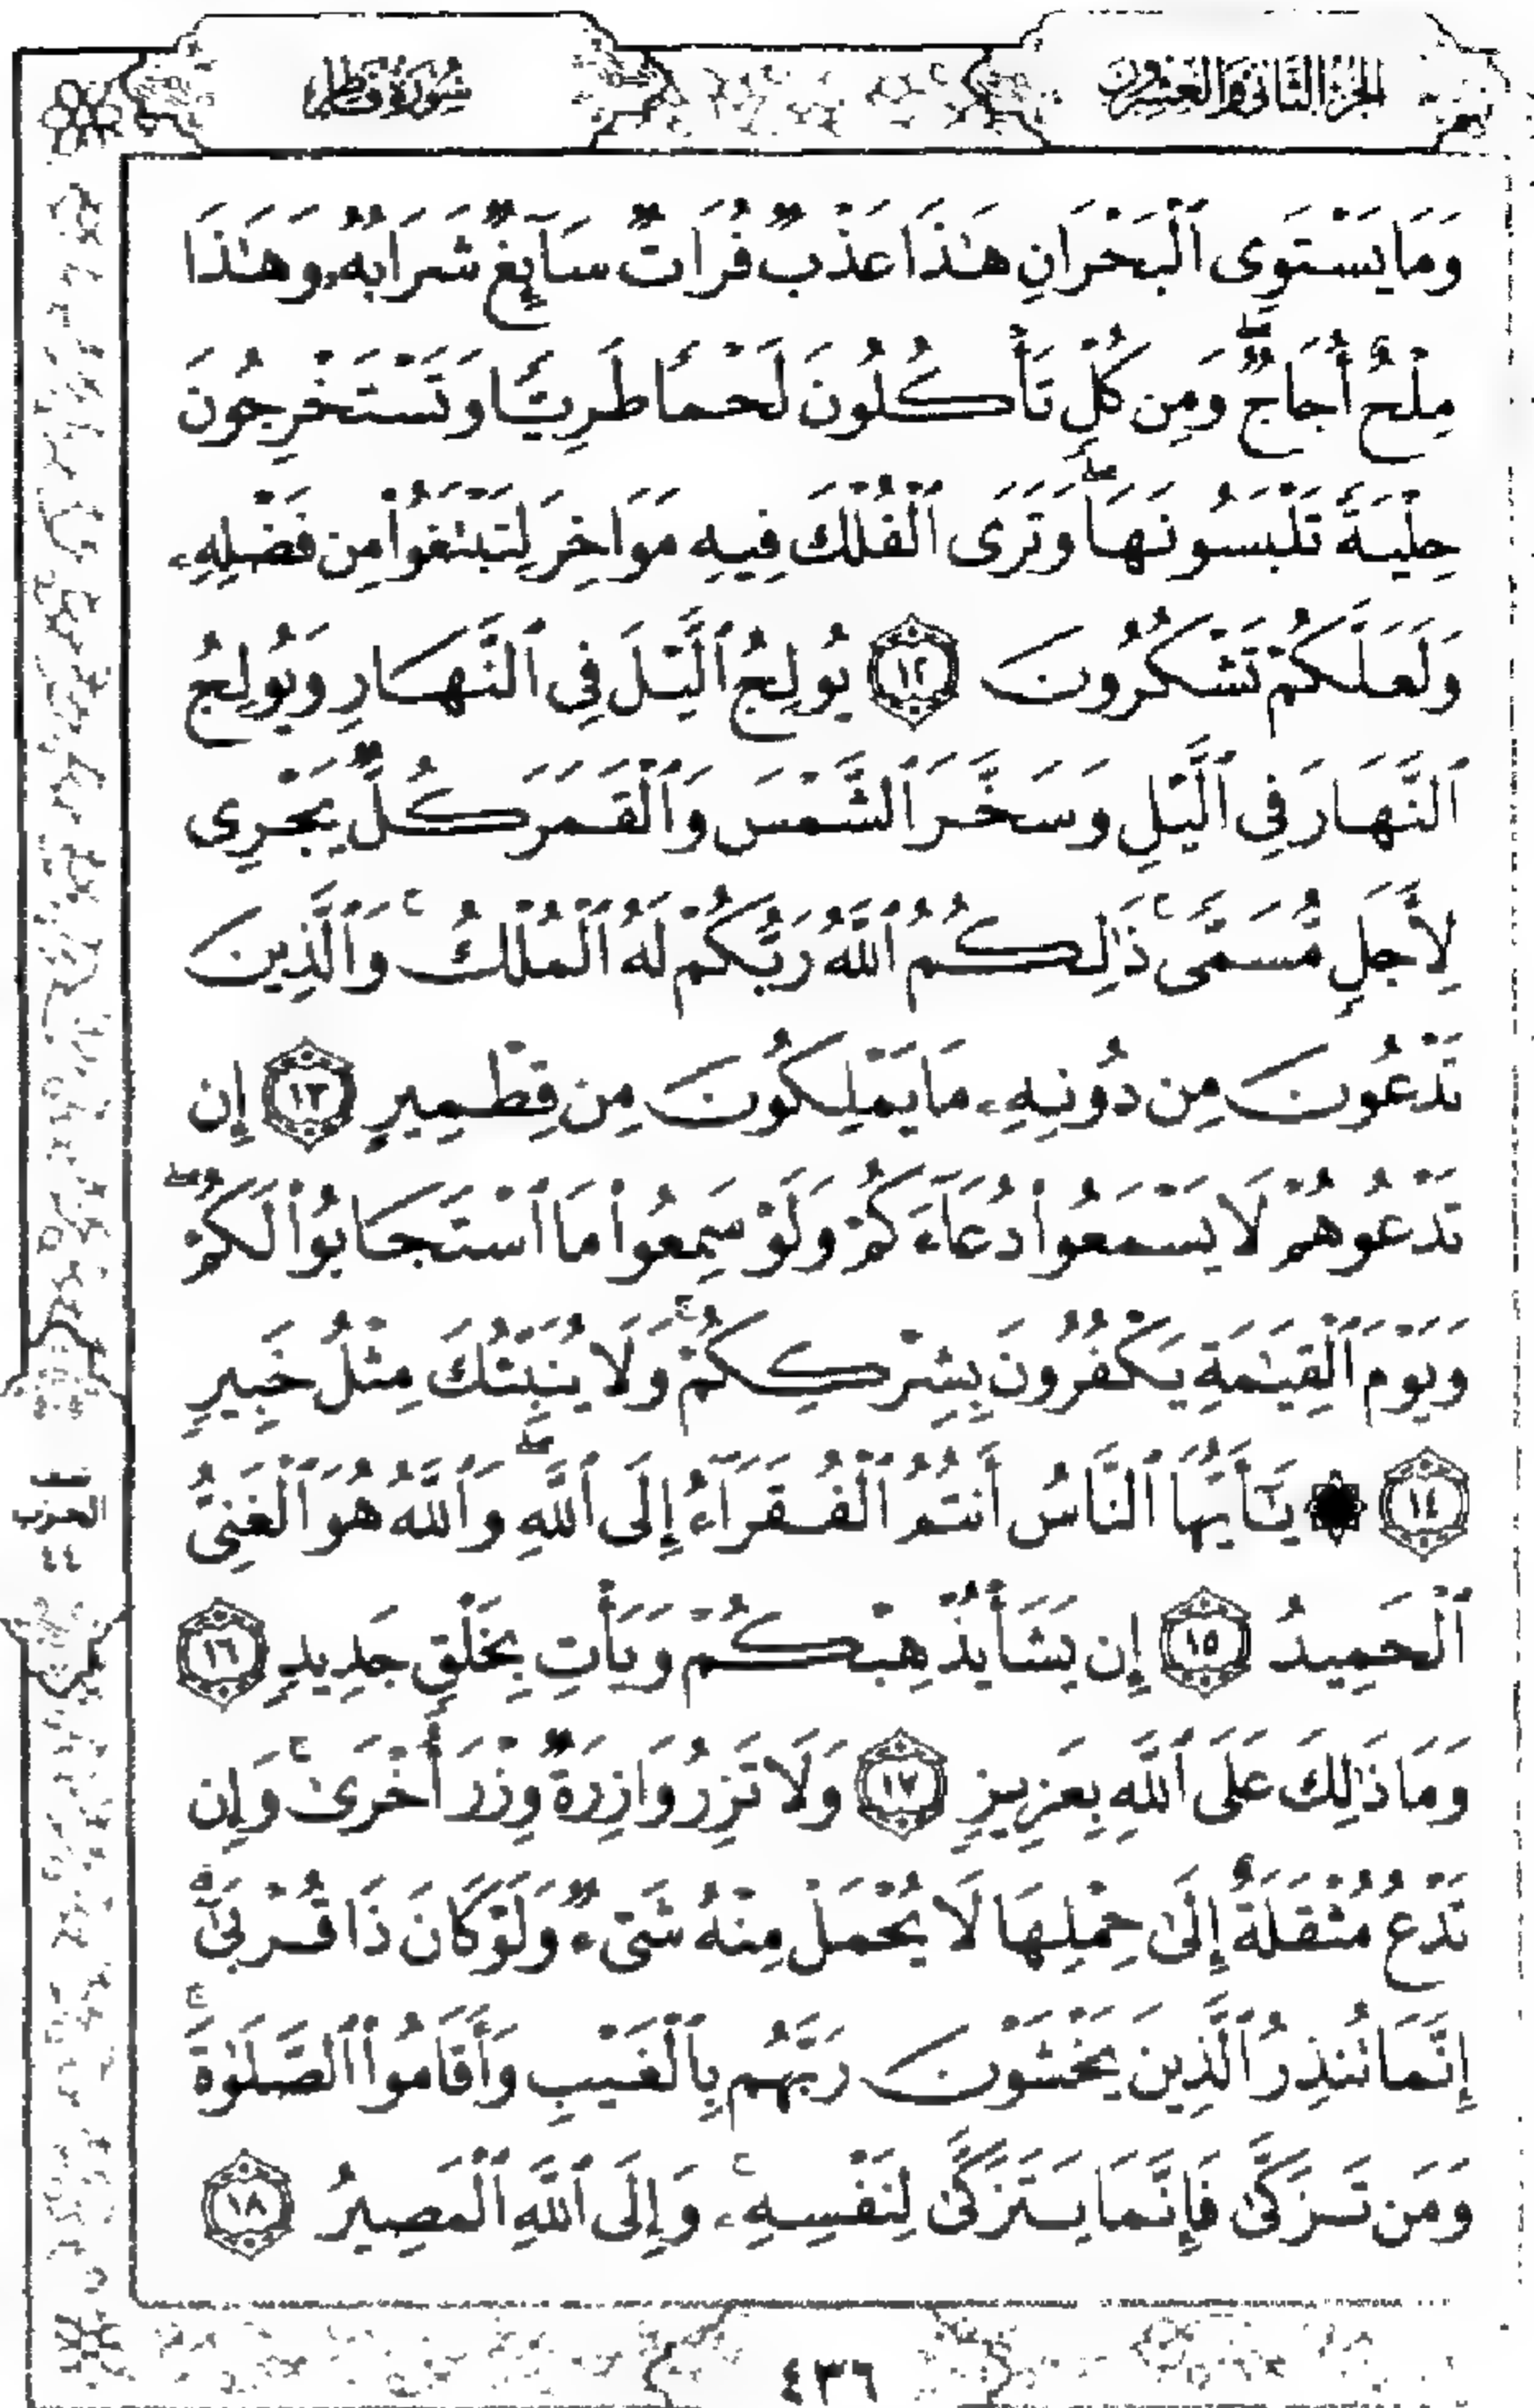 الجزء الثاني والعشرون
سورة فاطر
وَمَا يَسْتَوِى ٱلْبَحْرَانِ هَـٰذَا عَذْبٌ فُرَاتٌ سَآئِغٌ شَرَابُهُۥ وَهَـٰذَا
مِلْحٌ أُجَاجٌ ۖ وَمِن كُلٍّ تَأْكُلُونَ لَحْمًا طَرِيًّا وَتَسْتَخْرِجُونَ
حِلْيَةً تَلْبَسُونَهَا ۖ وَتَرَى ٱلْفُلْكَ فِيهِ مَوَاخِرَ لِتَبْتَغُوا۟ مِن فَضْلِهِۦ
وَلَعَلَّكُمْ تَشْكُرُونَ ١٢ يُولِجُ ٱلَّيْلَ فِى ٱلنَّهَارِ وَيُولِجُ
ٱلنَّهَارَ فِى ٱلَّيْلِ وَسَخَّرَ ٱلشَّمْسَ وَٱلْقَمَرَ كُلٌّ يَجْرِى
لِأَجَلٍ مُّسَمًّى ۚ ذَٰلِكُمُ ٱللَّهُ رَبُّكُمْ لَهُ ٱلْمُلْكُ ۚ وَٱلَّذِينَ
تَدْعُونَ مِن دُونِهِۦ مَا يَمْلِكُونَ مِن قِطْمِيرٍ ١٣ إِن
تَدْعُوهُمْ لَا يَسْمَعُوا۟ دُعَآءَكُمْ وَلَوْ سَمِعُوا۟ مَا ٱسْتَجَابُوا۟ لَكُمْ ۖ
وَيَوْمَ ٱلْقِيَـٰمَةِ يَكْفُرُونَ بِشِرْكِكُمْ ۚ وَلَا يُنَبِّئُكَ مِثْلُ خَبِيرٍ
١٤ ۞ يَـٰٓأَيُّهَا ٱلنَّاسُ أَنتُمُ ٱلْفُقَرَآءُ إِلَى ٱللَّهِ ۖ وَٱللَّهُ هُوَ ٱلْغَنِىُّ
ٱلْحَمِيدُ ١٥ إِن يَشَأْ يُذْهِبْكُمْ وَيَأْتِ بِخَلْقٍ جَدِيدٍ ١٦
وَمَا ذَٰلِكَ عَلَى ٱللَّهِ بِعَزِيزٍ ١٧ وَلَا تَزِرُ وَازِرَةٌ وِزْرَ أُخْرَىٰ ۚ وَإِن
تَدْعُ مُثْقَلَةٌ إِلَىٰ حِمْلِهَا لَا يُحْمَلْ مِنْهُ شَىْءٌ وَلَوْ كَانَ ذَا قُرْبَىٰٓ ۗ
إِنَّمَا تُنذِرُ ٱلَّذِينَ يَخْشَوْنَ رَبَّهُم بِٱلْغَيْبِ وَأَقَامُوا۟ ٱلصَّلَوٰةَ ۚ
وَمَن تَزَكَّىٰ فَإِنَّمَا يَتَزَكَّىٰ لِنَفْسِهِۦ ۚ وَإِلَى ٱللَّهِ ٱلْمَصِيرُ ١٨
الحزب
٤٤
٤٣٦